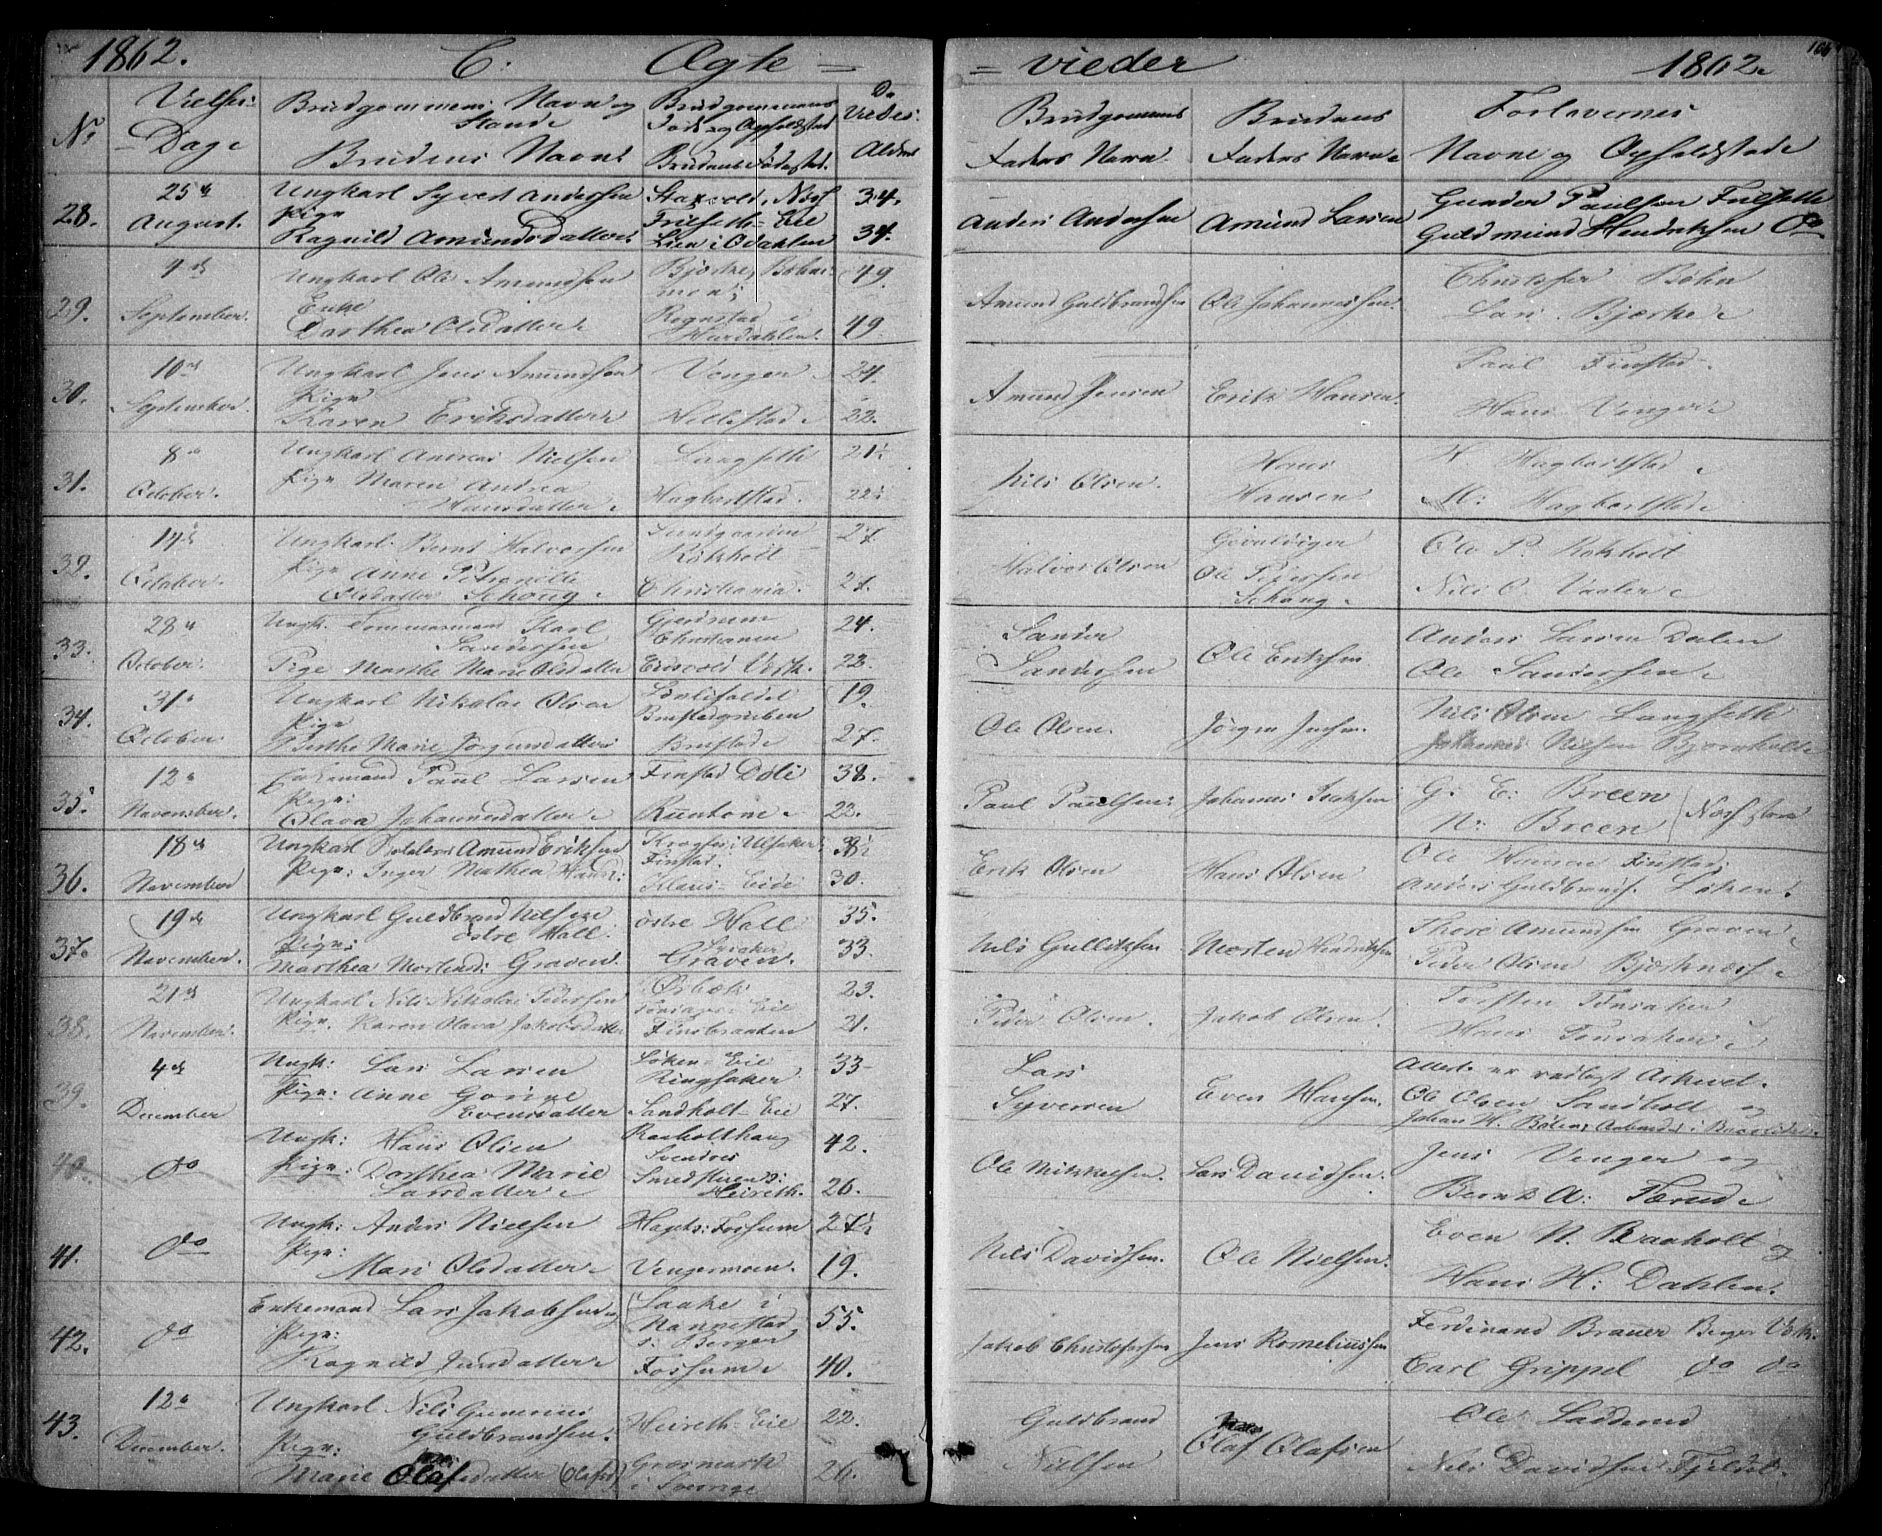 1862. C. Ægte =
= vieder 1862.
No
Vielses:
Dage
Brudgommens Navn og
Stand
Brudens Navn
Brudgommens
Føde og Opholdssted
Brudens Fødested.
De
Viedes
Alder
Brudgommens
Faders Navn.
Brudens
Faders Navn
Forlovernes
Navne og Opholdssted
28.
25de
August.
Ungkarl Syver Andersen
Pige
Ragnild Amundsdatter
Eie
i Odahlen
34.
34.
Anders Andersen
Amund Larsen
Gunder Paulsen
Guldmund Hendriksen Do
29.
September.
Ungkarl Ole Amundsen
Enke
Dorthea Olsdatter
Bjerke,
Rognstad i
Hurdahlen.
49.
49.
Amund Guldbrandsen
Ole Johannessen.
Christoffer Bøhn
Lars Bjerke
30.
10de
September.
Ungkarl Jens Amundsen
Pige
Karen Eriksdatter
Venger
Nellestad
24.
22.
Amund Jensen
Erik Hansen.
Paul Finstad
Hans Venger
31.
8de
October.
Ungkarl Andreas Nielsen
Pige Maren Andrea
Hansdatter
Langseth
Hagbartstad.
21
22
Nils Olsen.
Hans
Hansen
H Hagbartstad
M: Hagbartstad
32.
October.
Ungkarl Bernt Halvorsen
Pige Anne Petronille
Olsdatter Schong
Rokholt
Christiania.
27
27.
Halvor Olsen
Ole Pedersen
Schong
Ole P. Rokholt
Nils O. Vaaler
33.
28de
October.
Ungk. Tømmermand Karl
Sandersen
Pige Marthe Marie Olsdatter
Gjerdrum
Eidsvold Verk.
24.
22.
Sander
Sandersen
Ole Eriksen
Anders Larsen Dalen
Ole Sandersen
34.
31
October.
Ungkarl Nikolai Olsen
Pige
Berthe Marie Jørgensdatter
19.
27.
Ole Olsen.
Jørgen Jensen.
Nils Olsen Langseth
Johannes Nielsen Bjørnholdt
35.
12
November.
Enkemand Paul Larsen
Pige:
Olava Johannesdatter
Finstad
38.
22.
Paul Paulsen
Johannes
G. E: Breen
N: Breen
36.
18de
November
Ungkarl Amund Eriksen
Pige: Inger Mathea
Finstad.
Eie
38
30.
Erik Olsen
Hans Olsen
Ole Hansen Finstad
Anders Guldbrands. Løken.
37.
19de
November.
Ungkarl Guldbrand Nilsen
østre Hall.
Pige:
Marthea Mortensd: Graven.
østre Hall
Graven.
35.
33.
Nils Gulliksen
Morten Hendriksen
Thore Amundsen Graven
Peder Olsen Bjerknæss
38.
21de
November.
Ungkarl Nils Nikolai Pedersen
Pige. Karen Olava Jakobsdatter
Ørbæk
Finsbraaten
23.
21.
Peder Olsen.
Jakob Olsen.
Torsten Tønsaker
Hans Tønsaker
39.
4de
December
Ungk: Lars Larsen
Pige: Anne
Evensdatter
Løken Eie
Ringsaker
Sandholt Eie
33
27.
Lars
Syversen
Even Hansen.
Attest er vedlagt Arkivet.
Ole Olsen Sandholt og
Johan H.
40.
Do
Ungk: Hans Olsen
Pige: Dorthea Marie
Larsdatter
Raaholthaug
Svendrei
Heireth.
42.
26.
Ole Mikkelsen.
Lars Davidsen.
Jens Venger og
Bernt A: Tærud
41.
Do
Ungk: Anders Nielsen
Pige:
Mari Olsdatter
Fossum
Vengermoen.
27
19.
Nils Davidsen.
Ole Nielsen.
Even N. Raaholt og
Hans H: Dahlen.
42.
Do
Enkemand Lars Jakobsen
Pige:
Ragnild Jensdatter
Laake i
Nannestad
Berger
Fossum
55.
40.
Jakob Christophersen
Jens Kornelinssen
Ferdinand Brauer Berger Verk.
Carl Grippel do do
43.
12
December.
Ungkarl Nils Gunerius
Guldbrandsen.
Pige:
Marie Olafsdatter
Heireth Eie
Græsmark
i Sverige
22.
26.
Guldbrand
Nielsen
Olaf Olafsen
Ole Ladderud
Nils Davidsen